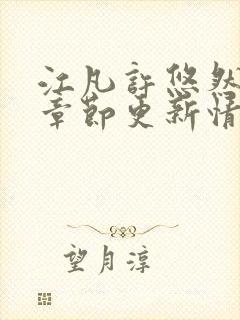 江凡许悠然
章节更新情
望月淳